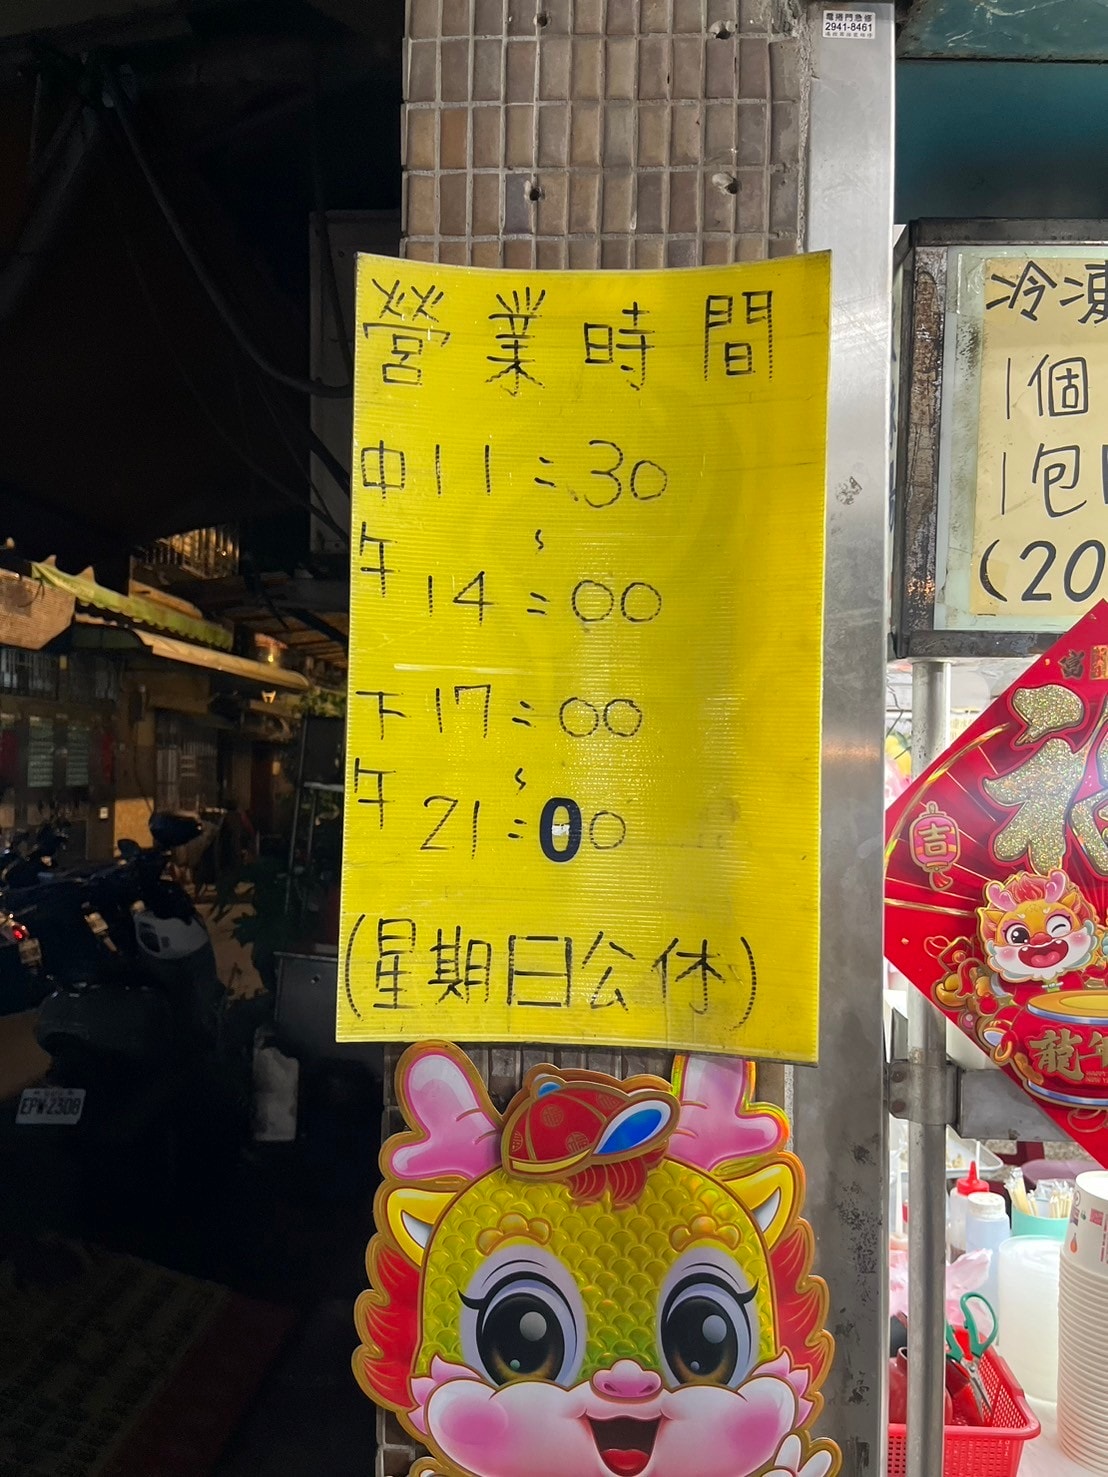 電捲門急修
2941-8461
營業時間
中午 11:30
~
14:00
下午 17:00
~
21:00
(星期日公休)
冷凍
1個
1包
(20
吉
龍年
EPW-2308